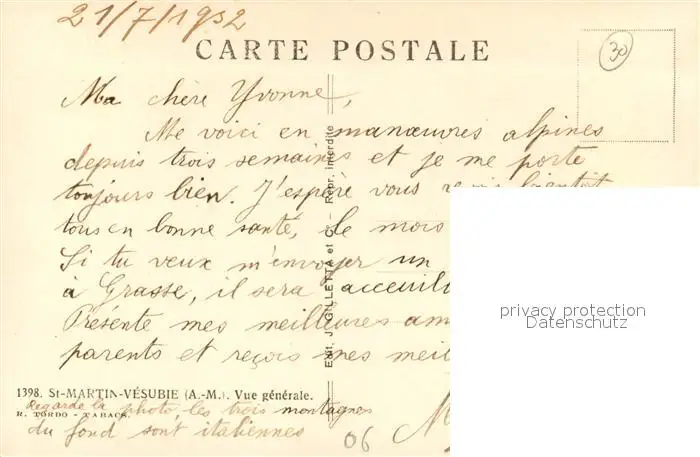 21/7/1932
CARTE POSTALE
30
Ma chère Yvonne,
Me voici en manœuvres alpines
depuis trois semaines et je me porte
toujours bien. J'espère vous revoir bientôt
tous en bonne santé, le mois
Si tu veux m'envoyer un
à Grasse, il sera acceuilli
Présente mes meilleures
parents et reçois mes
Edit. J. GILLETTA et Cie - Repr. interdite
privacy protection
Datenschutz
1398. St-MARTIN-VÉSUBIE (A.-M.). Vue générale.
R. TORDO - TABACS.
Regarde la photo, les trois montagnes
du fond sont italiennes
06